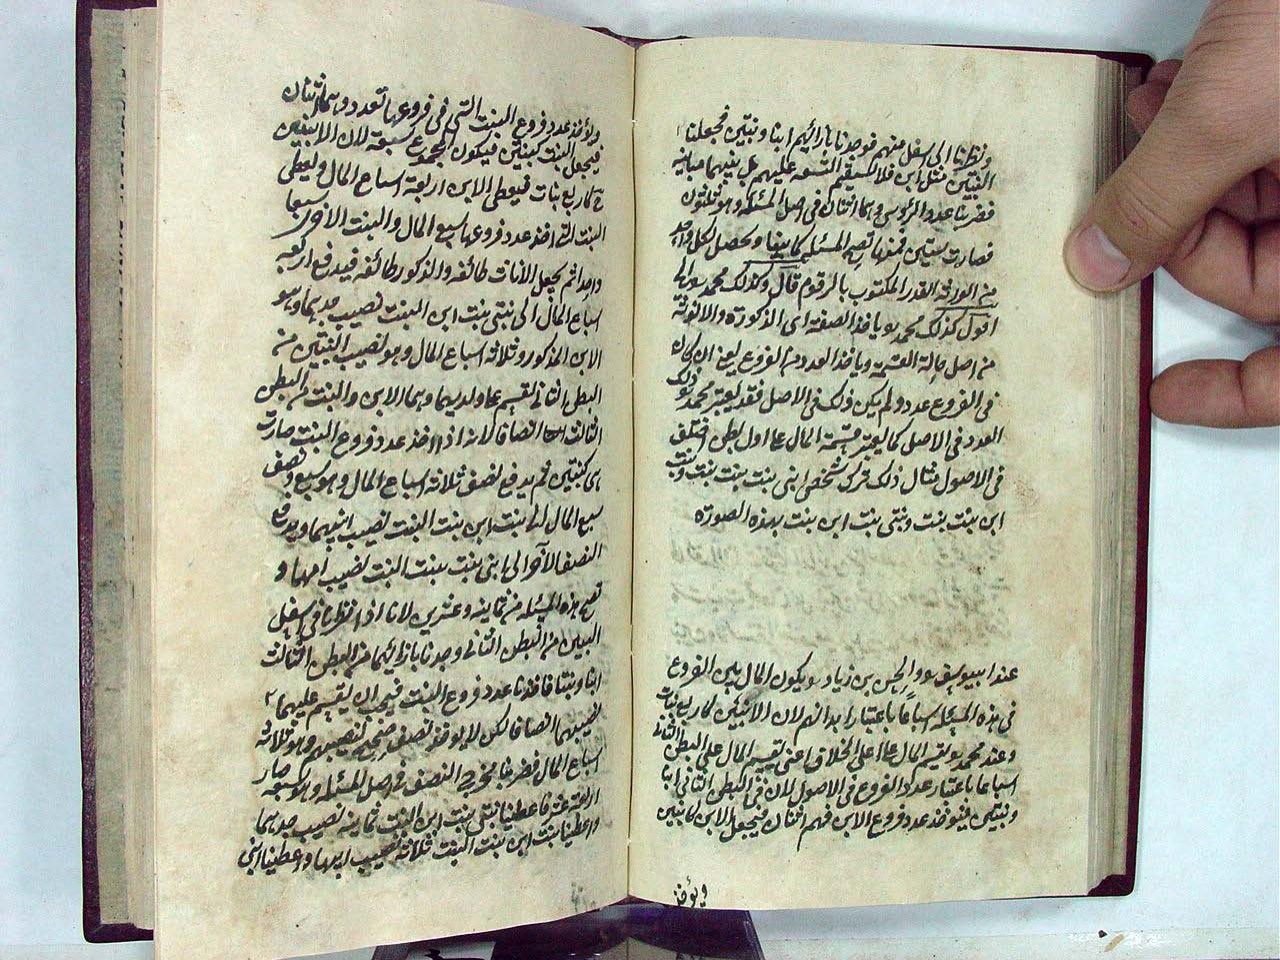 ونظرنا الى اسفل منهم فوجدنا بازائهم ابنا وبنتين فجعلنا
البنتين مثل ابن فلا يستقيم التسعة عليهم بل بينهما مباينه
فضربنا عدد الرؤس وهما اثنان في اصل المسئله وهو ثلثون
فصارت ستين فمنها تصح المسئله كما بينا ويحصل لكل واحد
من الورثه القدر المكتوب بالرقوم قال وكذلك محمد
اقول كذلك محمد ياخذ الصفه اى الذكورة والانوثة
من اصل حالة القسمة وياخذ العدد من الفروع يعنى ان كان
فى الفروع عدد ولم يكن ذلك فى الاصل فقد يعتبر محمد ذلك
العدد فى الاصل كما يعتبر قسمة المال على اول بطن اختلف
فى الاصول مثال ذلك ترك شخص ابنى بنت بنت بنت وبنت
ابن بنت بنت وبنتى بنت ابن بنت بهذه الصورة
عند ابى يوسف والحسن بن زياد يكون المال بين الفروع
فى هذه المسئله اسباعا باعتبار ابدانهم لان الابنين كاربع بنات
وعند محمد يقسم المال على اعلى الخلاف اعنى يقسم المال على البطن الثانى
اسباعا باعتبار عدد الفروع فى الاصول لان فى البطن الثانى ابنا
وبنتين فيؤخذ عدد فروع الابن فهم اثنان فيجعل الابن كابنين
ويؤخذ
ويؤخذ عدد فروع البنت التى فى فروعها تعدد وهما اثنان
فيجعل البنت كبنتين فيكون المجموع كسبعة لان الابنين
كاربع بنات فيعطى الابن اربعة اسباع المال ويعطى
البنت التى اخذ عدد فروعها سبعى المال والبنت الاخرى سبعا
واحدا ثم يجعل الاناث طائفه والذكور طائفه فيدفع اربعة
اسباع المال الى بنتى بنت ابن البنت نصيب جدهما وهو
الابن المذكور وثلاثه اسباع المال وهو نصيب البنتين من
البطن الثانى يقسم على ولديهما وهما الابن والبنت من البطن
الثالث انصافا لانه اذا اخذ عدد فروع البنت صارت
هى كبنتين ثم يدفع نصف ثلاثه اسباع المال وهو سبع ونصف
سبع المال الى بنت ابن بنت البنت نصيب ابيهما ويدفع
النصف الآخر الى ابنى بنت بنت البنت نصيب امهما و
تصح هذه المسئله من ثمانيه وعشرين لانا اذا نظرنا فى اسفل
البنتين من البطن الثانى وجدنا بازائهما من البطن الثالث
ابنا وبنتا فاخذنا عدد فروع البنت فيجب ان يقسم عليهما
نصيبهما انصافا لكن لا يوجد نصف صحيح لنصيبهم وهو ثلاثه
اسباع المال فضربنا مخرج النصف فى اصل المسئله وهو سبعه صار
اربعة عشر فاعطينا بنتى بنت ابن البنت ثمانيه نصيب جدهما
واعطينا بنت ابن بنت البنت ثلاثة نصيب ابيها واعطينا ابنى